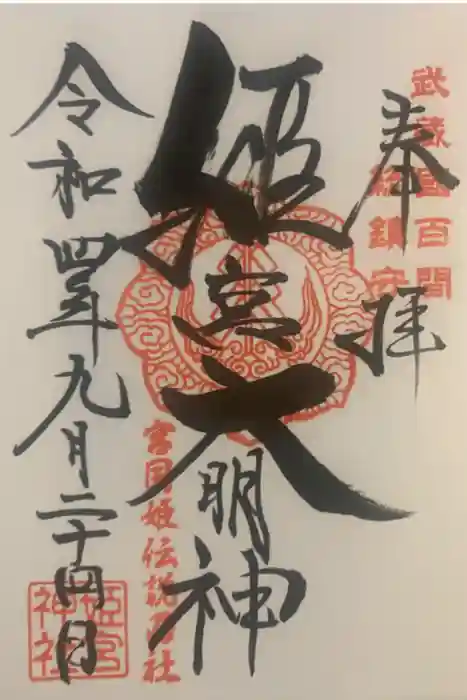 奉拝
武蔵国百間
総鎮守
姫宮大明神
宮目姫伝説西社
令和四年九月二十四日
姫宮
神社